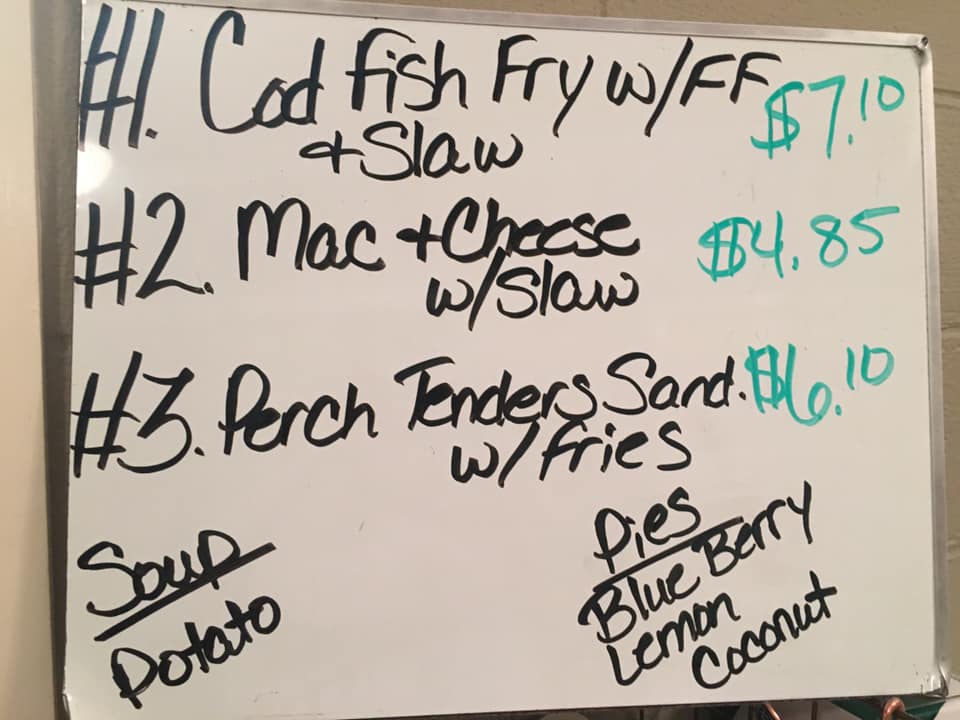 #1. Cod Fish Fry w/FF $7.10
+ Slaw
#2. Mac + Cheese $4.85
w/Slaw
#3. Perch Tenders Sand. $6.10
w/Fries
Soup
Potato
Pies
Blue Berry
Lemon
Coconut